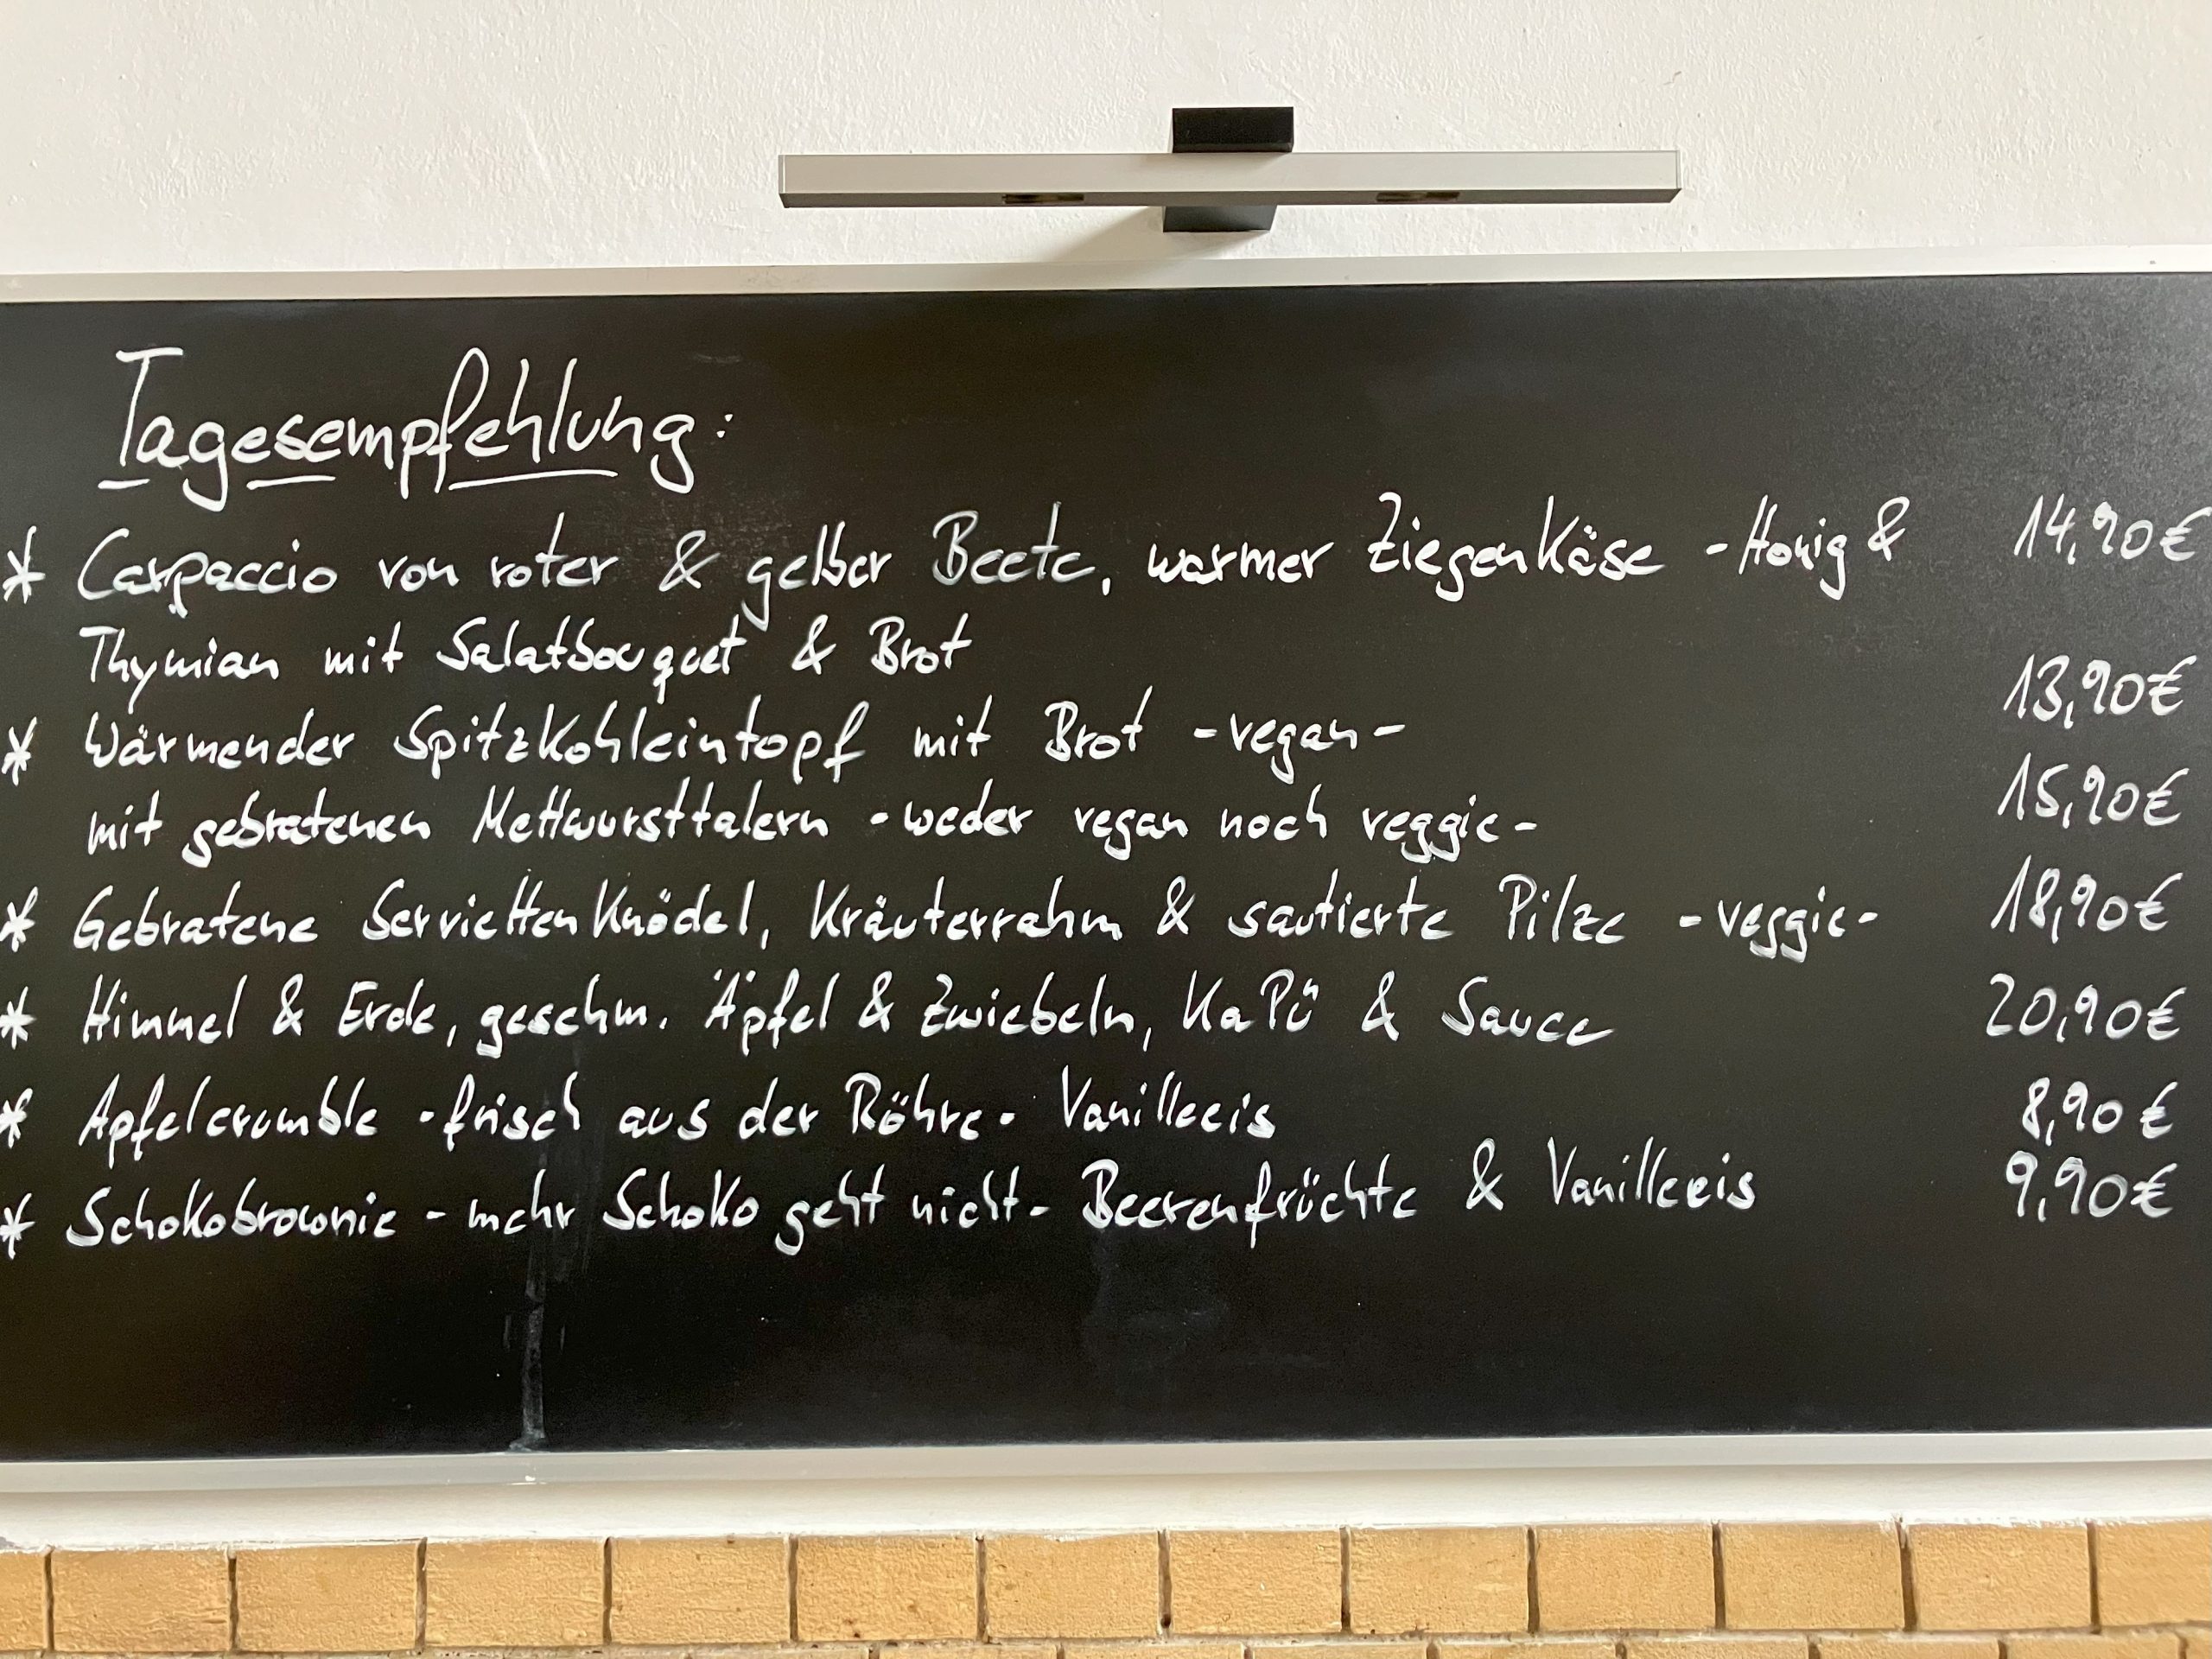 Tagesempfehlung:
* Carpaccio von roter & gelber Beete, warmer Ziegenkäse - Honig & 14,90€
Thymian mit Salatbouquet & Brot
* Wärmender Spitzkohleintopf mit Brot - vegan - 13,90€
mit gebratenen Mettwursttalern - weder vegan noch veggie - 15,90€
* Gebratene Serviettenknödel, Kräuterrahm & sautierte Pilze - veggie - 18,90€
* Himmel & Erde, geschm. Äpfel & Zwiebeln, KaPü & Sauce 20,90€
* Apfelcrumble - frisch aus der Röhre - Vanilleeis 8,90€
* Schokobrownie - mehr Schoko geht nicht - Beerenfrüchte & Vanilleeis 9,90€